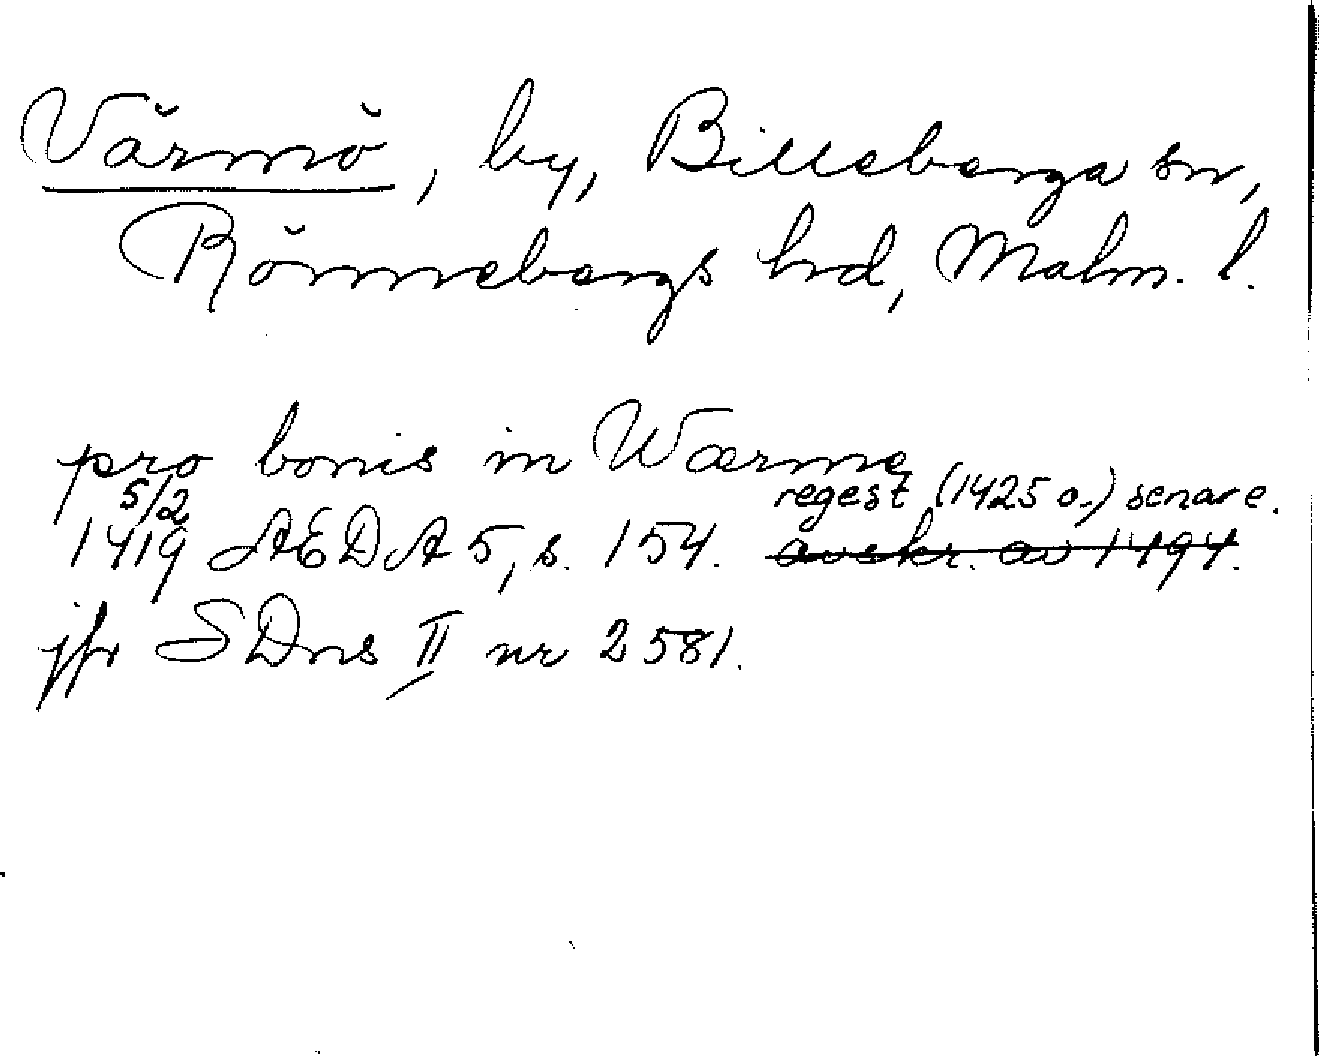 Värmö, by, Billeberga sn,
Rönnebergs hrd, Malm. l.
pro bonis in Wærme
5/2 regest (1425 o.) senare.
1419 AEDA 5, s. 154. avskr. av 1494.
jfr SDns II nr 2581.